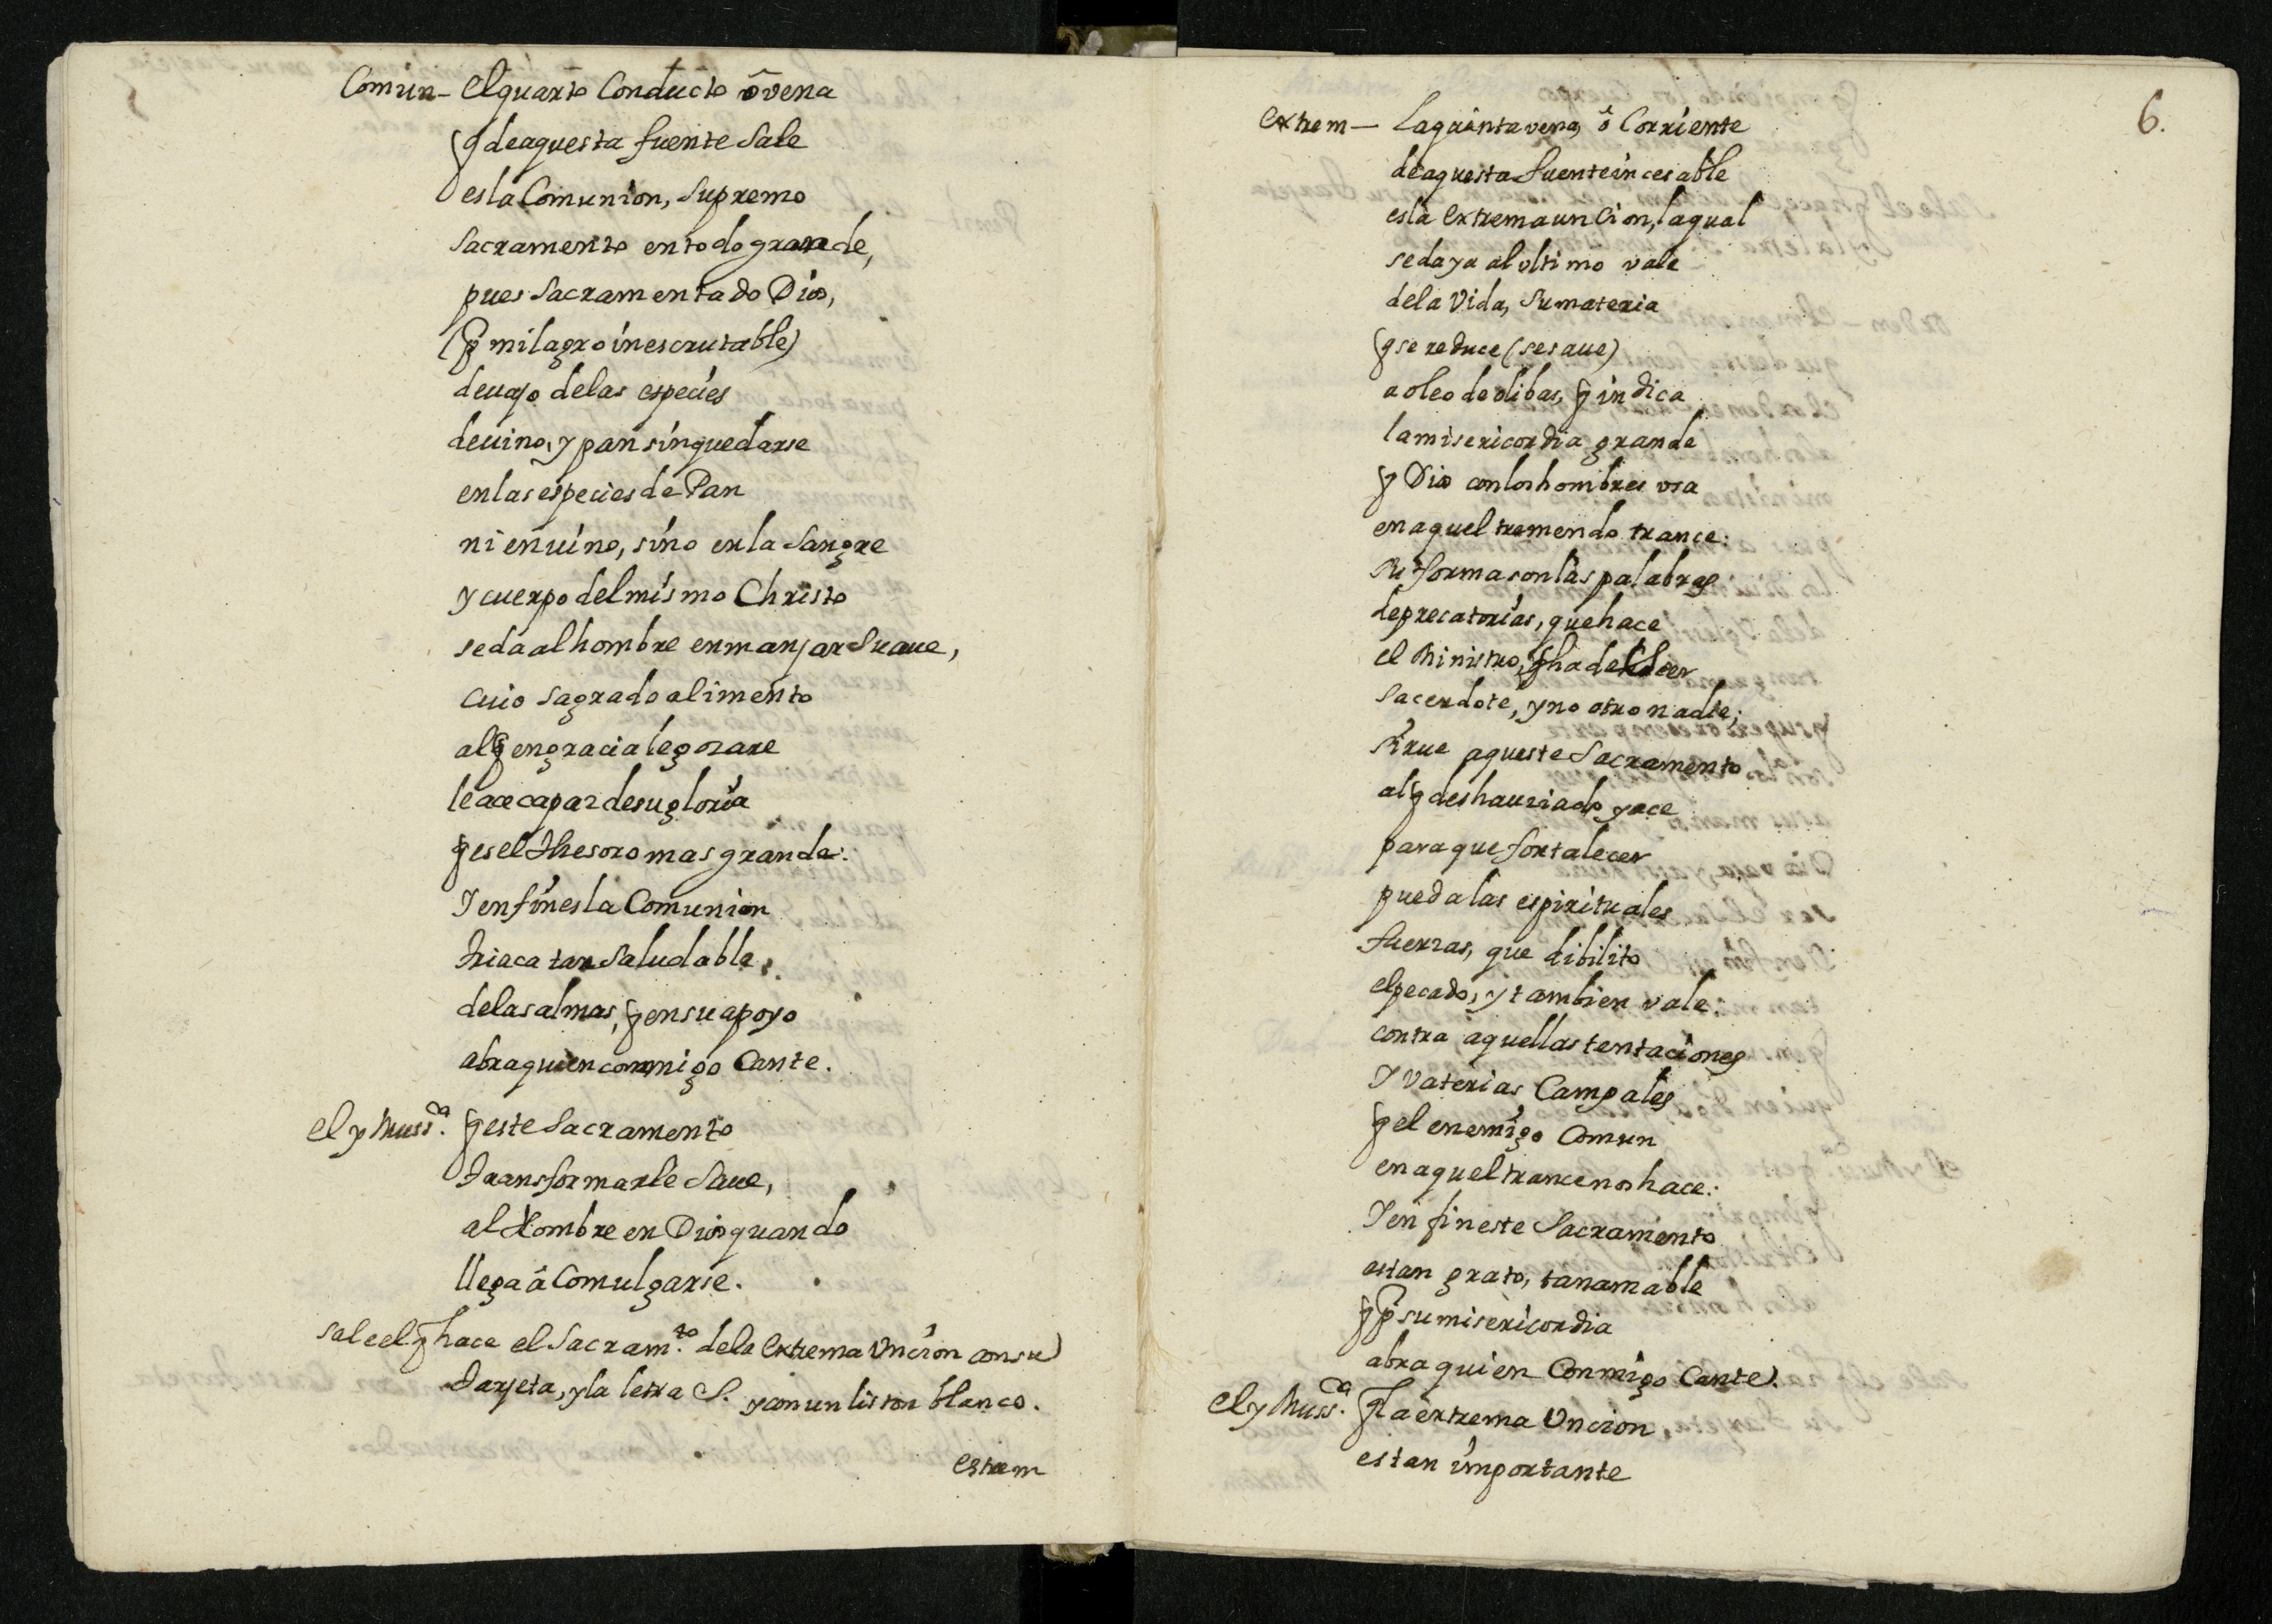 Comun- El quarto Conducto ô vena
q̃ de aquesta fuente Sale
es la Comunion, Supremo
Sacramento en todo grande,
pues Sacramentado Dios,
(p̃ milagro inescrutable)
deuajo de las especies
de uino, y pan sin quedarse
en las especies de Pan
ni en uino, sino en la Sangre
y cuerpo del mismo Christo
se da al hombre en manjar Suaue,
cuio sagrado alimento
al q̃ en gracia le gozare
le ace capaz de su gloria
q̃ es el thesoro mas grande:
I en fin es la Comunion
triaca tan Saludable
de las almas, q̃ en su apoyo
abra quien conmigo Cante.
El y Muss.ca q̃ este Sacramento
transformarle Saue,
al Hombre en Dios quando
llega â Comulgarse.
Sale el q̃ hace el Sacram.to de la Extrema Uncion con su
tarjeta, y la letra S. y con un liston blanco.
Estrem
6.
Extrem- La quinta vena, ô Corriente
de aquesta fuente incesable
es la Extremauncion, la qual
se da ya al vltimo vale
de la Vida, Su materia
q̃ se reduce (se saue)
a oleo de olibas, q̃ indica
la misericordia grande
q̃ Dios con los hombres vsa
en aquel tremendo trance:
su forma son las palabras
deprecatorias, que hace
el Ministro, q̃ ha de Ser
Sacerdote, y no otro nadie;
Sirue aqueste Sacramento
al q̃ deshauziado yace
para que fortalecer
pueda las espirituales
fuerzas, que dibilito
el pecado, y tambien vale
contra aquellas tentaciones
I vaterias Campales
q̃ el enemigo Comun
en aquel trance nos hace:
I en fin este Sacramento
es tan grato, tan amable
q̃ p̃ su misericordia
abra quien Conmigo Cante.
El y Muss.ca q̃ la extrema Uncion
es tan importante